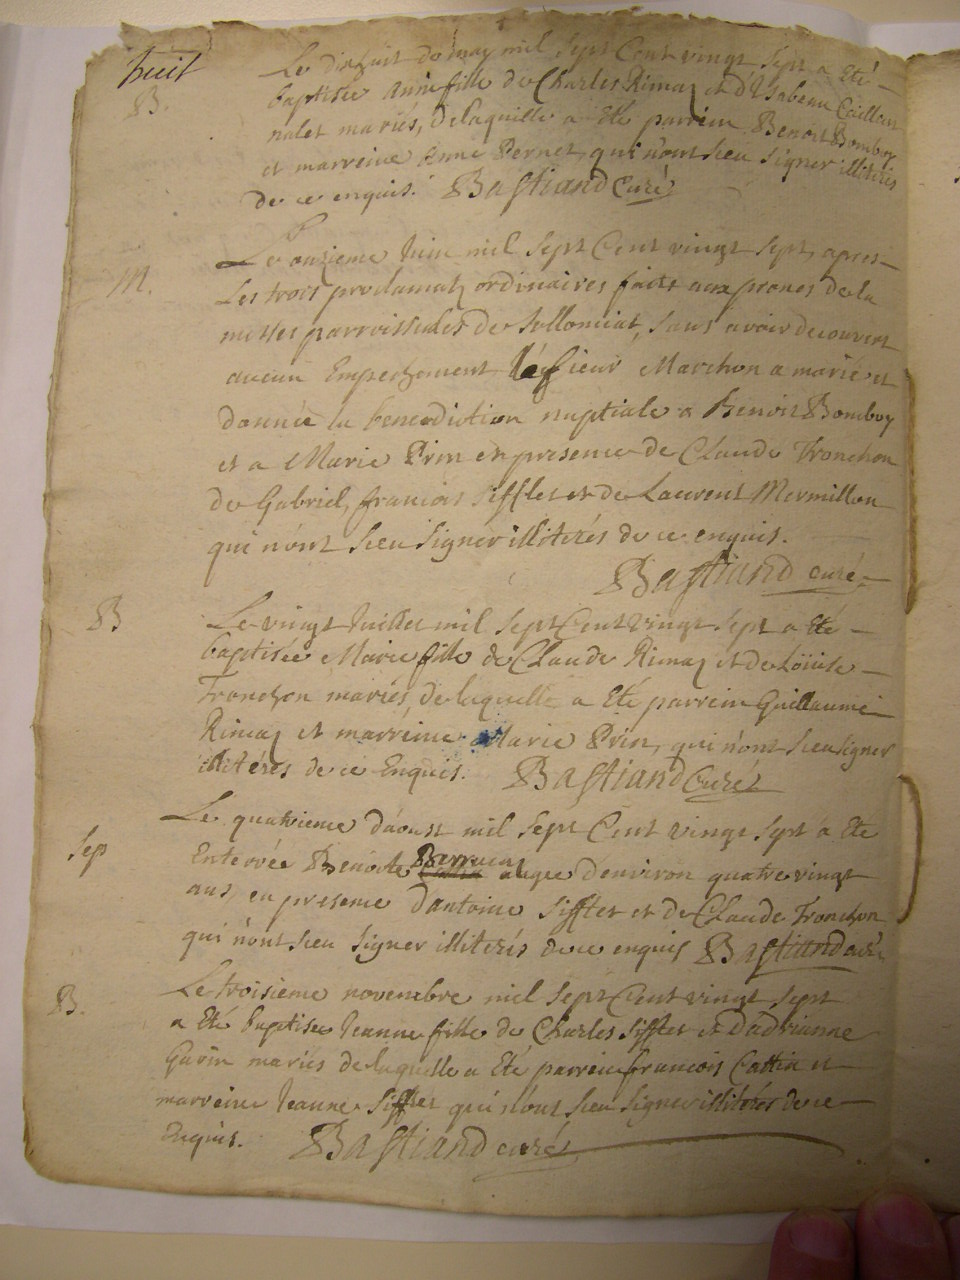 huit
Le dixhuit de may mil sept Cent vingt sept a Eté
B.
baptisée Anne fille de Charles Rimaz et d'Ysabeau Caillou
nalet mariés, de laquelle a Eté parrein Benoit Bomboy
et marreine Anne Pernet, qui n'ont sceu signer illiterés
de ce enquis. Bastiand Curé
Le onzieme Juin mil sept Cent vingt sept, apres
M.
Les trois proclamatz ordinaires faits aux prones de la
messes parroissiales de Sollomiat, sans avoir decouvert
aucun Empechement le sieur Marchon a marié et
donnée la benediction nuptiale a Benoit Bomboy
et a Marie Prin en presence de Claude Tronchon
de Gabriel, francois Sifflet et de Laurent Mermillon
qui n'ont sceu signer illiterés de ce enquis.
Bastiand curé
B
Le vingt Juillet mil sept Cent vingt sept a Eté
baptisée Marie fille de Claude Rimaz et de Loüise
Tronchon mariés, de laquelle a Eté parrein Guillaume
Rimaz et marreine Marie Prin, qui n'ont sceu signer
illiterés de ce Enquis. Bastiand Curé
Le quatrieme d'aoust mil sept Cent vingt sept a Eté
Sep
Enterrée Benoite agée d'environ quatre vingt
ans, en presence d'antoine Sifflet et de Claude Tronchon
qui n'ont sceu signer illiterés de ce enquis Bastiand curé
B.
Le troisieme novembre mil sept Cent vingt sept
a Eté baptisée Jeanne fille de Charles Sifflet et d'adrianne
Gavin mariés de laquelle a Eté parrein francois Cattin et
marreine Jeanne Sifflet qui n'ont sceu signer illiterés de ce
Enquis. Bastiand curé